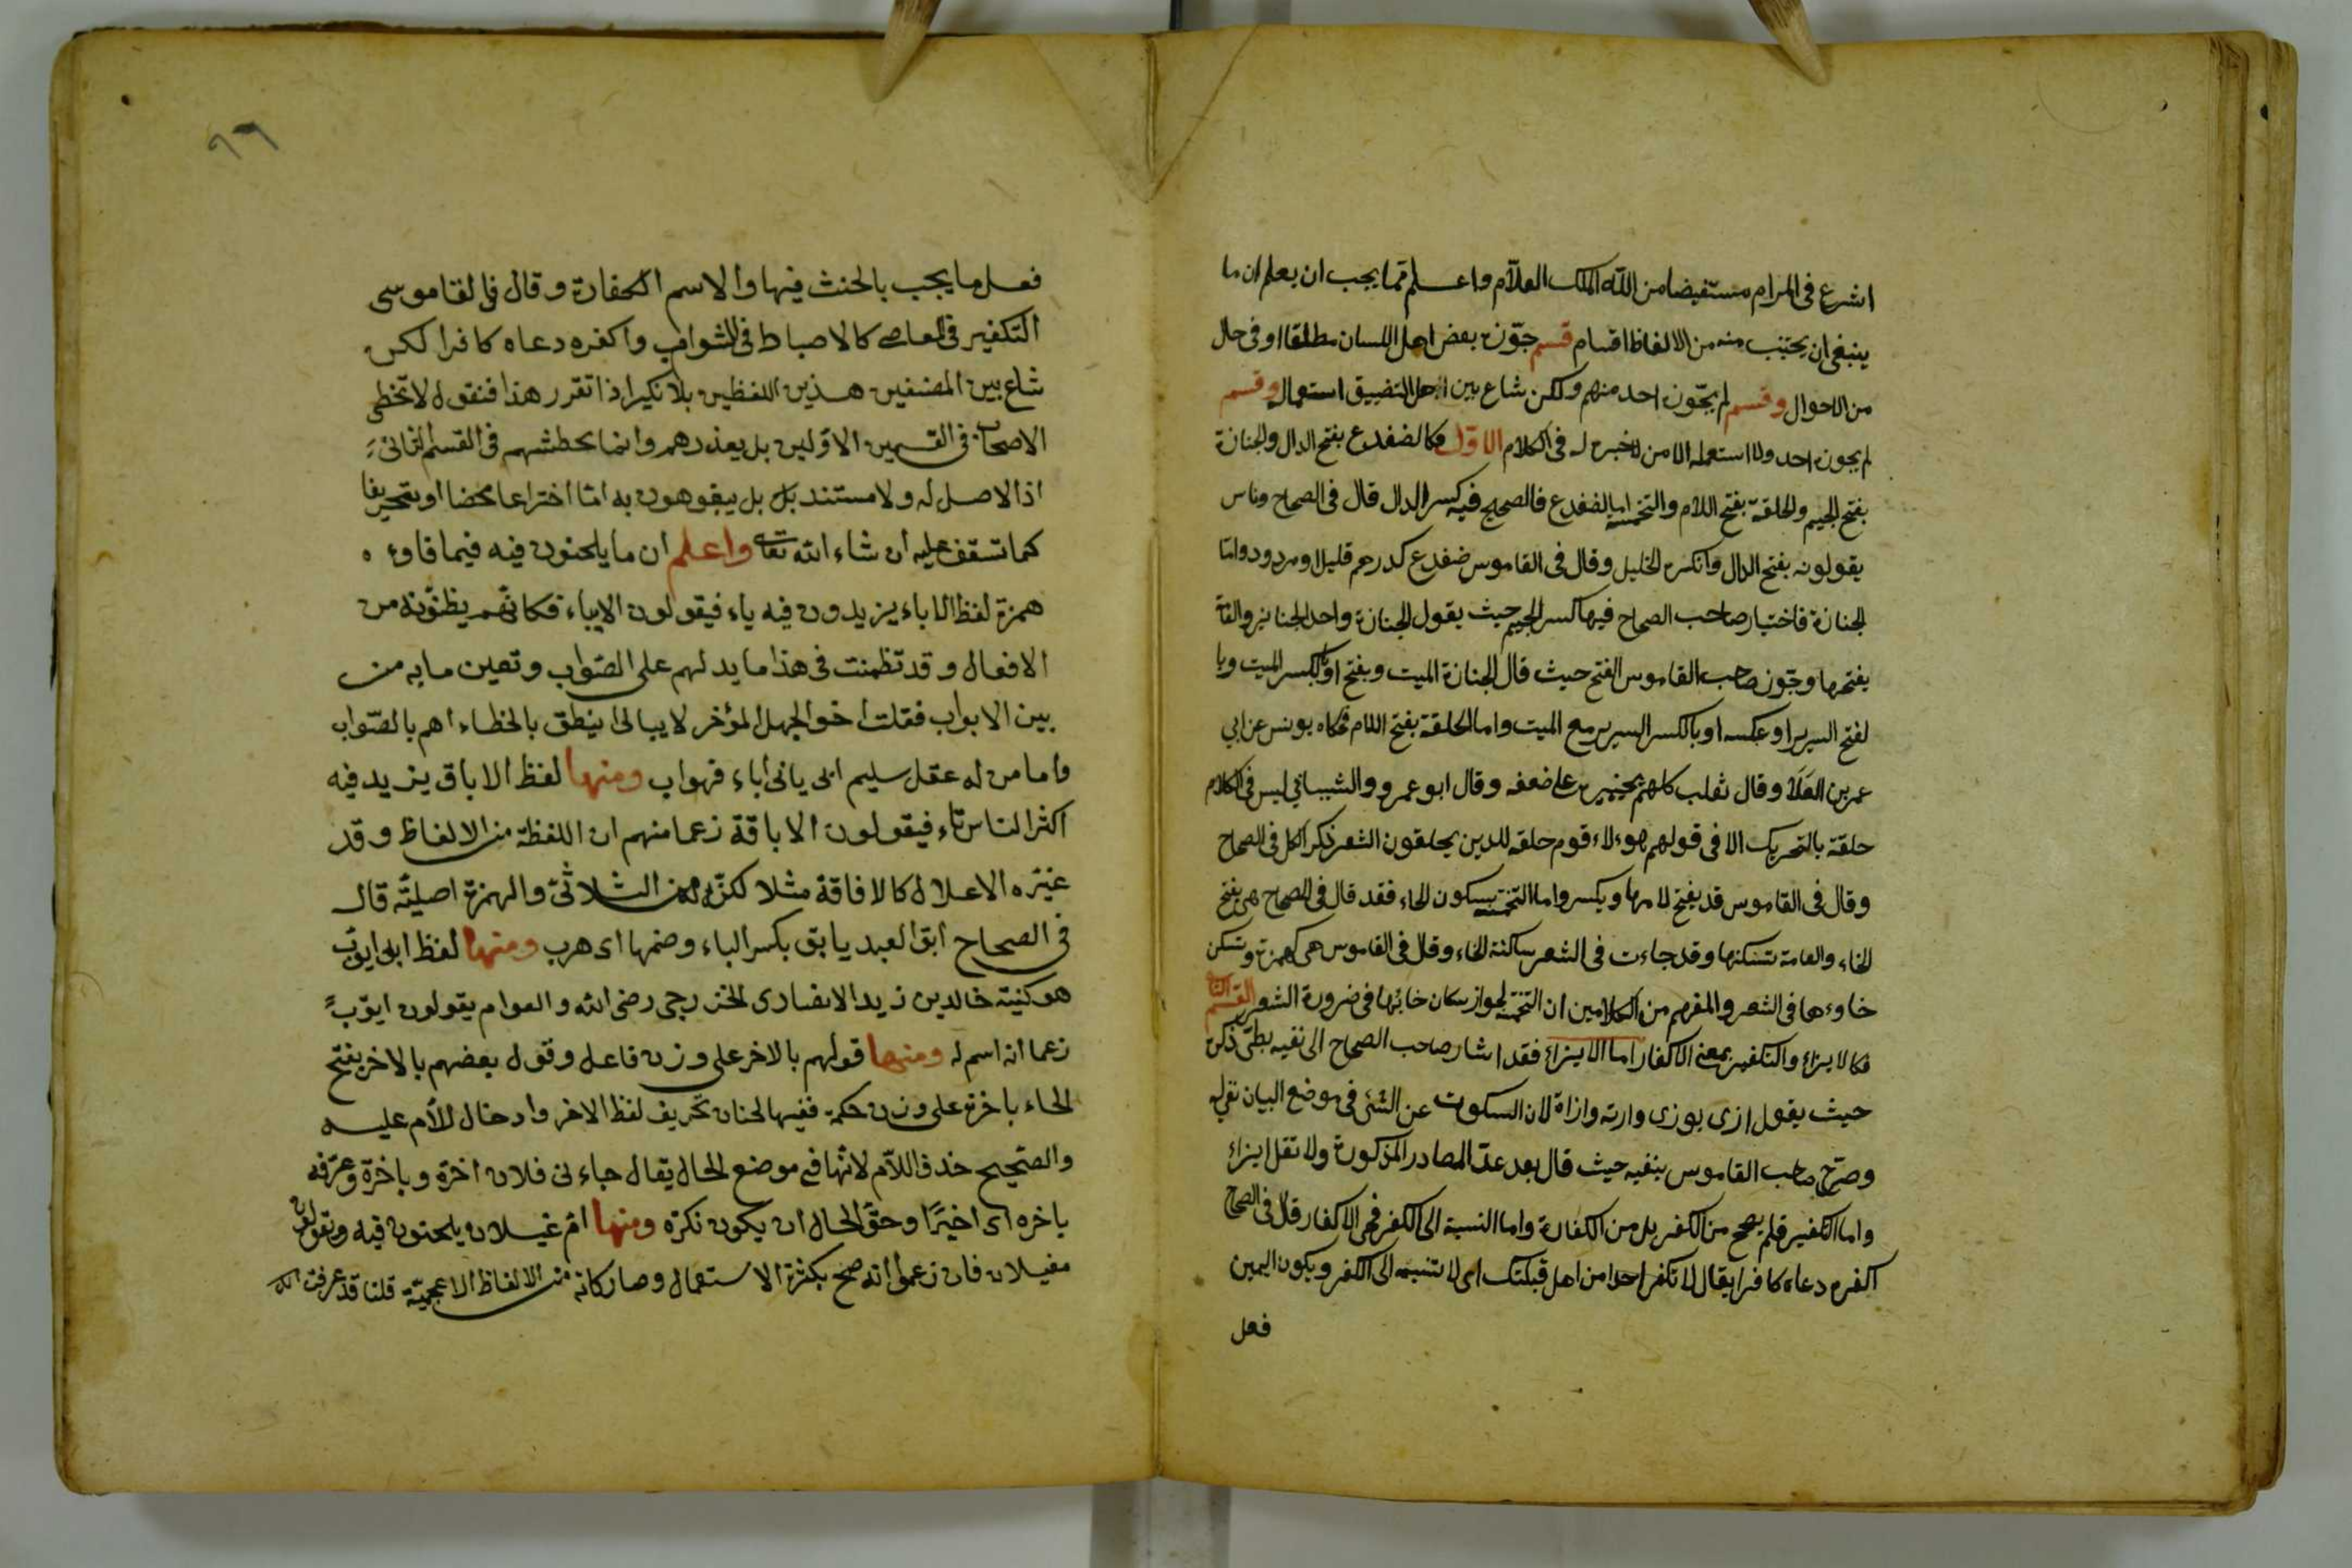 اشرع فى المرام مستفيضا من الله الملك العلآم واعلم مما يجب ان يعلم ان ما
ينبغى ان يجتنب منه من الالفاظ اقسام قسم جوّزه بعض اهل اللسان مطلقا او فى حال
من الاحوال وقسم لم يجّوزه احد منهم ولكن شاع بين اهل التضييق استعماله وقسم
لم يجوزه احد ولا استعمله الا من لا خبرة له فى الكلام الاوّل فكالضفدع بفتح الدال والجنازة
بفتح الجيم والحلقة بفتح اللام والتخمة اما الضفدع فالصحيح فيه كسر الدال قال فى الصحاح وناس
يقولونه بفتح الدال وانكره الخليل وقال فى القاموس ضفدع كدرهم قليل او مردود واما
الجنازة فاختيار صاحب الصحاح فيها كسر الجيم حيث يقول الجنازة واحد الجنايز والعامة
يفتحها وجّوز صاحب القاموس الفتح حيث قال الجنازة الميت وبفتح او بالكسر الميت وبا
لفتح السرير او عكسه او بالكسر السرير مع الميت واما الحلقة بفتح اللام فحكاه يونس عن ابي
عمر بن العَلَا وقال ثعلب كلهم يجيزه على ضعفه وقال ابو عمرو والشيباني ليس فى الكلام
حلقة بالتحريك الا فى قولهم هوءلاء قوم حلقه للدين يحلقون الشعر ذكر الكل فى الصحاح
وقال فى القاموس قد يفتح لامها ويكسر واما التخمة بسكون الخاء فقد قال فى الصحاح هى بفتح
الخاء والعامة تسكنها وقد جاءت فى الشعر ساكنة الخاء وقال فى القاموس هى كهمزة وتسكن
خاوءها فى الشعر والمفهم من الكلامين ان التخمة لجواز سكان خائها فى ضرورة الشعر القسم الثانى
فكالايذاء والتكفير بمعنى الاكفار اما الايذاء فقد اشار صاحب الصحاح الى نفيه بطىّ ذكره
حيث يقول اذى يوذى وارته واذاة لان السكوت عن الشئ فى موضع البيان نفى له
وصرّح صاحب القاموس بنفيه حيث قال بعد عدّ المصادر المذكورة ولا تقل ايذاء
واما التكفير فلم يصح من الكفر بل من الكفارة واما النسبة الى الكفر فهى الاكفار قال فى الصحاح
اكفره دعاه كافرا يقال لا تكفر احدا من اهل قبلتك اى لا تنسبه الى الكفر ويكون اليمين
فعل
٩٦
فعل ما يجب بالحنث فيها والاسم الكفارة وقال في القاموسى
التكفير فى المعاصے كالاحباط فى الثواب واكفره دعاه كافرا لكن
شاع بين المصنفين هذين اللفظين بلا نكير اذا تقرر هذا فنقول لا تخطى
الاصحاب فى القسمين الاوّلين بل يعذرهم وانما يحطشهم فى القسم الثانى
اذ الاصل له ولا مستند بل بل يبقوهون به امّا اختراعا محضا او بتحريفا
كما تسقف عليه ان شاء الله تعالى واعلم ان ما يلحنون فيه فيما فاوءه
همزة لفظ الاباء يزيدون فيه ياء فيقولون الايباء فكانّهم يظنّونه من
الافعال وقد تظمنت فى هذا ما يدلهم على الصّواب وتعين ما به من
بين الابواب فقلت اخو الجهل المؤخر لا يبالى اينطق بالخطاء اهم بالصّواب
واما من له عقل سليم ابى يابى اباء فهواب ومنها لفظ الاباق يزيد فيه
اكثر الناس تاء فيقولون الاباقة زعما منهم ان اللفظة من الالفاظ وقد
غيّره الاعلال كالافاقة مثلا لكنّه من الثلاثىّ والهمزة اصليّة قال
فى الصحاح ابق العبد يابق بكسر الباء وضمها اى هرب ومنها لفظ ابى ايوّب
هو كنية خالد بن زيد الانصارى الخزرجى رضى الله والعوام يقولون ايوّبً
زعما انه اسم له ومنها قولهم بالاخر على وزن فاعل وقول بعضهم بالاخر بفتح
الخاء باخرة على وزن حكمة ففيها لحنان تحريف لفظ الاخر وادخال اللأم عليه
والصّحيح حذف اللآم لانّها فى موضع الحال يقال جاءنى فلان اخرة وباخرة وعرّفه
باخره اى اخيرًا وحقّ الحال ان يكون نكرة ومنها امّ غيلان يلحنون فيه ويقولون
مغيلان فان زعموا انه صحّ بكثرة الاستعمال وصار كانّه من الالفاظ الاعجميّة قلنا قد عرفت انه